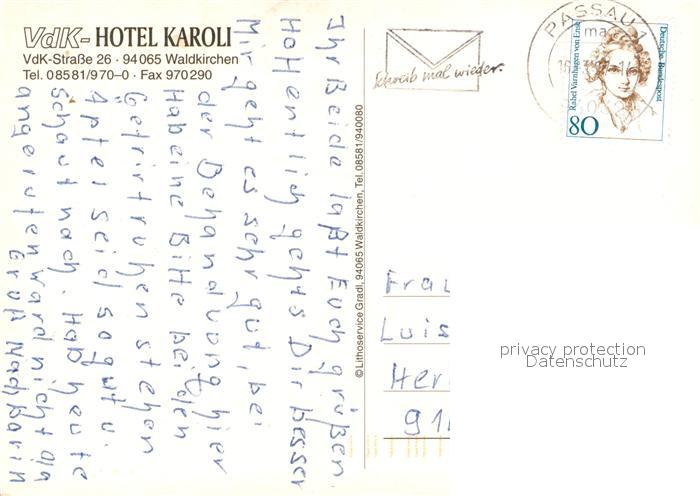 VdK- HOTEL KAROLI
VdK-Straße 26 · 94065 Waldkirchen
Tel. 08581/970–0 · Fax 970290
Ihr Beide laßt Euch grüßen
Hoffentlich gehts Dir besser
Mir geht es sehr gut, bei
der Behandlung hier
Hab eine Bitte bei den
Gefrirtruhen stehen
Äpfel seid so gut u.
schaut nach. Hab heute
angerufen ward nicht da
Gruß Nachbarin
© Lithoservice Gradl, 94065 Waldkirchen, Tel. 08581/940080
Schreib mal wieder.
PASSAU 1
Rahel Varnhagen von Ense
Deutsche Bundespost
80
Frau
Luis
Her
91
privacy protection
Datenschutz